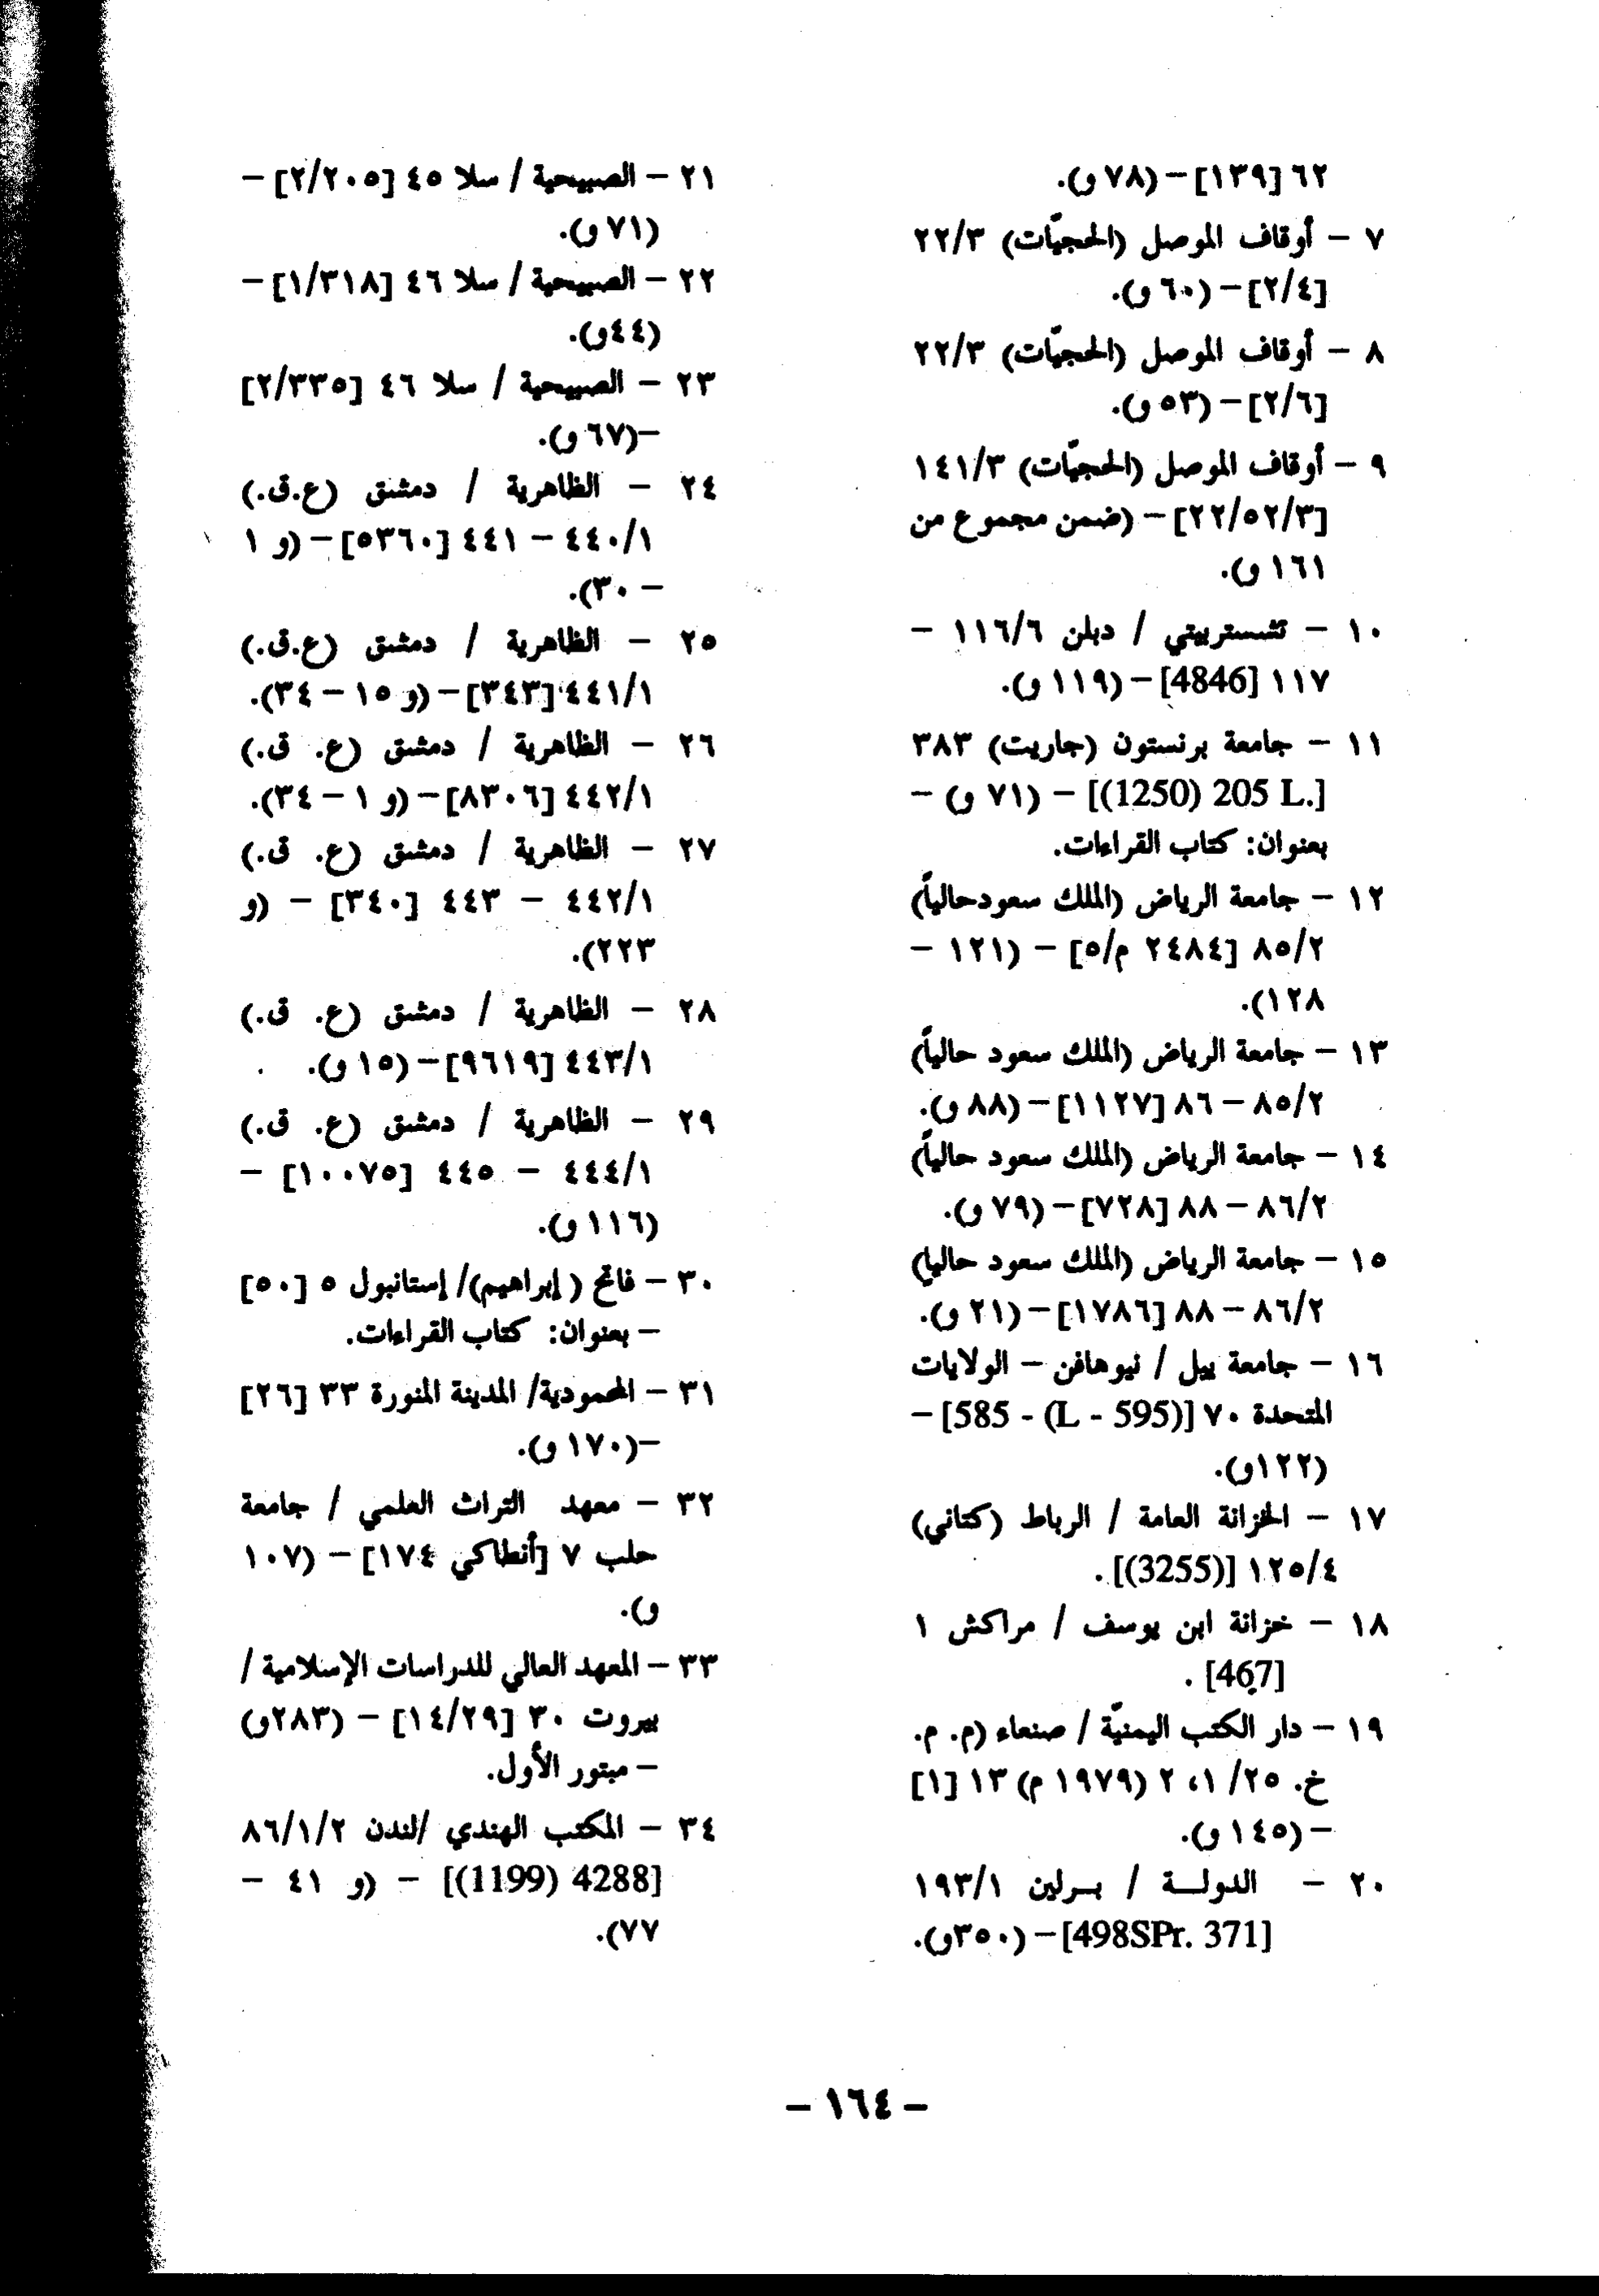 ٦٢ [١٣٩] – (٧٨ و).
٧ – أوقاف الموصل (الحجيّات) ٢٢/٣
[٢/٤] – (٦٠ و).
٨ – أوقاف الموصل (الحجيّات) ٢٢/٣
[٢/٦] – (٥٣ و).
٩ – أوقاف الموصل (الحجيّات) ١٤١/٣
[٢٢/٥٢/٣] – (ضمن مجموع من
١٦١ و).
١٠ – تشستربيتي / دبلن ١١٦/٦ –
١١٧ [4846] – (١١٩ و).
١١ – جامعة برنستون (جاريت) ٣٨٣
[(1250) 205 L.] – (٧١ و) –
بعنوان: كتاب القراءات.
١٢ – جامعة الرياض (الملك سعودحالياً)
٨٥/٢ [٢٤٨٤ م/٥] – (١٢١ –
١٢٨).
١٣ – جامعة الرياض (الملك سعود حالياً)
٨٥/٢ – ٨٦ [١١٢٧] – (٨٨ و).
١٤ – جامعة الرياض (الملك سعود حالياً)
٨٦/٢ – ٨٨ [٧٢٨] – (٧٩ و).
١٥ – جامعة الرياض (الملك سعود حاليا)
٨٦/٢ – ٨٨ [١٧٨٦] – (٢١ و).
١٦ – جامعة ييل / نيوهافن – الولايات
المتحدة ٧٠ [585 - (L - 595)] –
(١٢٢و).
١٧ – الخزانة العامة / الرباط (كتاني)
١٢٥/٤ [(3255)] .
١٨ – خزانة ابن يوسف / مراكش ١
[467] .
١٩ – دار الكتب اليمنيّة / صنعاء (م. م.
خ. ٢٥/ ١، ٢ (١٩٧٩ م) ١٣ [١]
– (١٤٥ و).
٢٠ – الدولـــة / بــرلين ١٩٣/١
[498SPr. 371] – (٣٥٠و).
٢١ – الصبيحية / سلا ٤٥ [٢/٢٠٥] –
(٧١ و).
٢٢ – الصبيحية / سلا ٤٦ [١/٣١٨] –
(٤٤و).
٢٣ – الصبيحية / سلا ٤٦ [٢/٣٣٥]
–(٦٧ و).
٢٤ – الظاهرية / دمشق (ع.ق.)
٤٤٠/١ – ٤٤١ [٥٣٦٠] – (و ١
– ٣٠).
٢٥ – الظاهرية / دمشق (ع.ق.)
٤٤١/١ [٣٤٣] – (و ١٥ – ٣٤).
٢٦ – الظاهرية / دمشق (ع. ق.)
٤٤٢/١ [٨٣٠٦] – (و ١ – ٣٤).
٢٧ – الظاهرية / دمشق (ع. ق.)
٤٤٢/١ – ٤٤٣ [٣٤٠] – (و
٢٢٣).
٢٨ – الظاهرية / دمشق (ع. ق.)
٤٤٣/١ [٩٦١٩] – (١٥ و).
٢٩ – الظاهرية / دمشق (ع. ق.)
٤٤٤/١ – ٤٤٥ [١٠٠٧٥] –
(١١٦ و).
٣٠ – فاتح ( إبراهيم)/ إستانبول ٥ [٥٠]
– بعنوان: كتاب القراءات.
٣١ – المحمودية/ المدينة المنورة ٣٣ [٢٦]
–(١٧٠ و).
٣٢ – معهد التراث العلمي / جامعة
حلب ٧ [أنطاكي ١٧٤] – (١٠٧
و).
٣٣ – المعهد العالي للدراسات الإسلامية /
بيروت ٣٠ [١٤/٢٩] – (٢٨٣و)
– مبتور الأول.
٣٤ – المكتب الهندي /لندن ٨٦/١/٢
[(1199) 4288] – (و ٤١ –
٧٧).
– ١٦٤ –